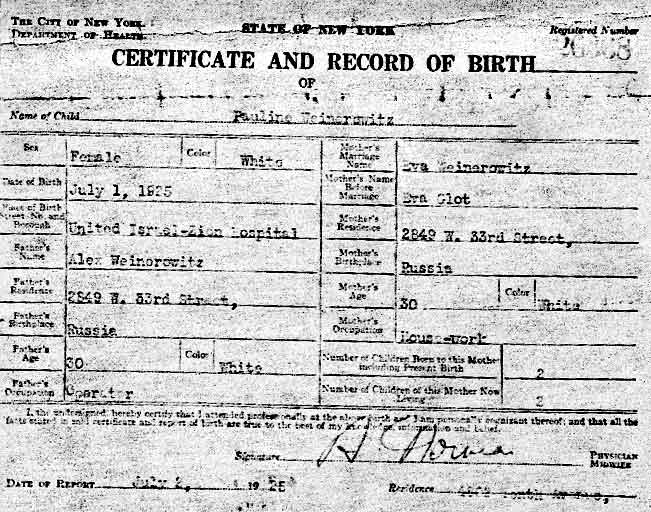 THE CITY OF NEW YORK.
DEPARTMENT OF HEALTH.
STATE OF NEW YORK
Registered Number
CERTIFICATE AND RECORD OF BIRTH
OF
Name of Child Pauline Weinorowitz
Sex Female Color White
Mother's Marriage Name Eva Weinorowitz
Date of Birth July 1, 1925
Mother's Name Before Marriage Eva Glot
Place of Birth Street, No. and Borough United Israel-Zion Hospital
Mother's Residence 2849 W. 33rd Street,
Father's Name Alex Weinorowitz
Mother's Birthplace Russia
Father's Residence 2849 W. 33rd Street,
Mother's Age 30 Color White
Father's Birthplace Russia
Mother's Occupation House-work
Father's Age 30 Color White
Number of Children Born to this Mother including Present Birth 2
Father's Occupation Operator
Number of Children of this Mother Now Living 2
I, the undersigned, hereby certify that I attended professionally at the above birth and I am personally cognizant thereof; and that all the
facts stated in said certificate and report of birth are true to the best of my knowledge, information and belief.
Signature H.
PHYSICIAN
MIDWIFE
DATE OF REPORT July 2, 1925
Residence Tenth Avenue,